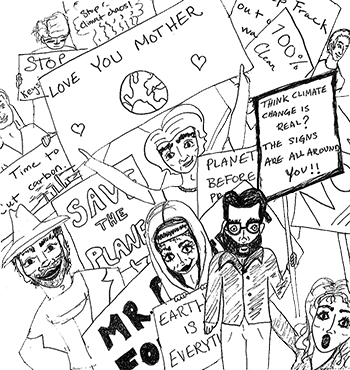 Stop
climate chaos!
STOP
Key
LOVE YOU MOTHER
op Frack
out o
wa
Clean
100%
THINK CLIMATE
CHANGE IS
REAL?
THE SIGNS
ARE ALL AROUND
YOU!!
Time to
cut carbon
SAVE
THE
PLANET
PLANET
BEFORE
PR
MR
FO
EARTH
IS
EVERYTH